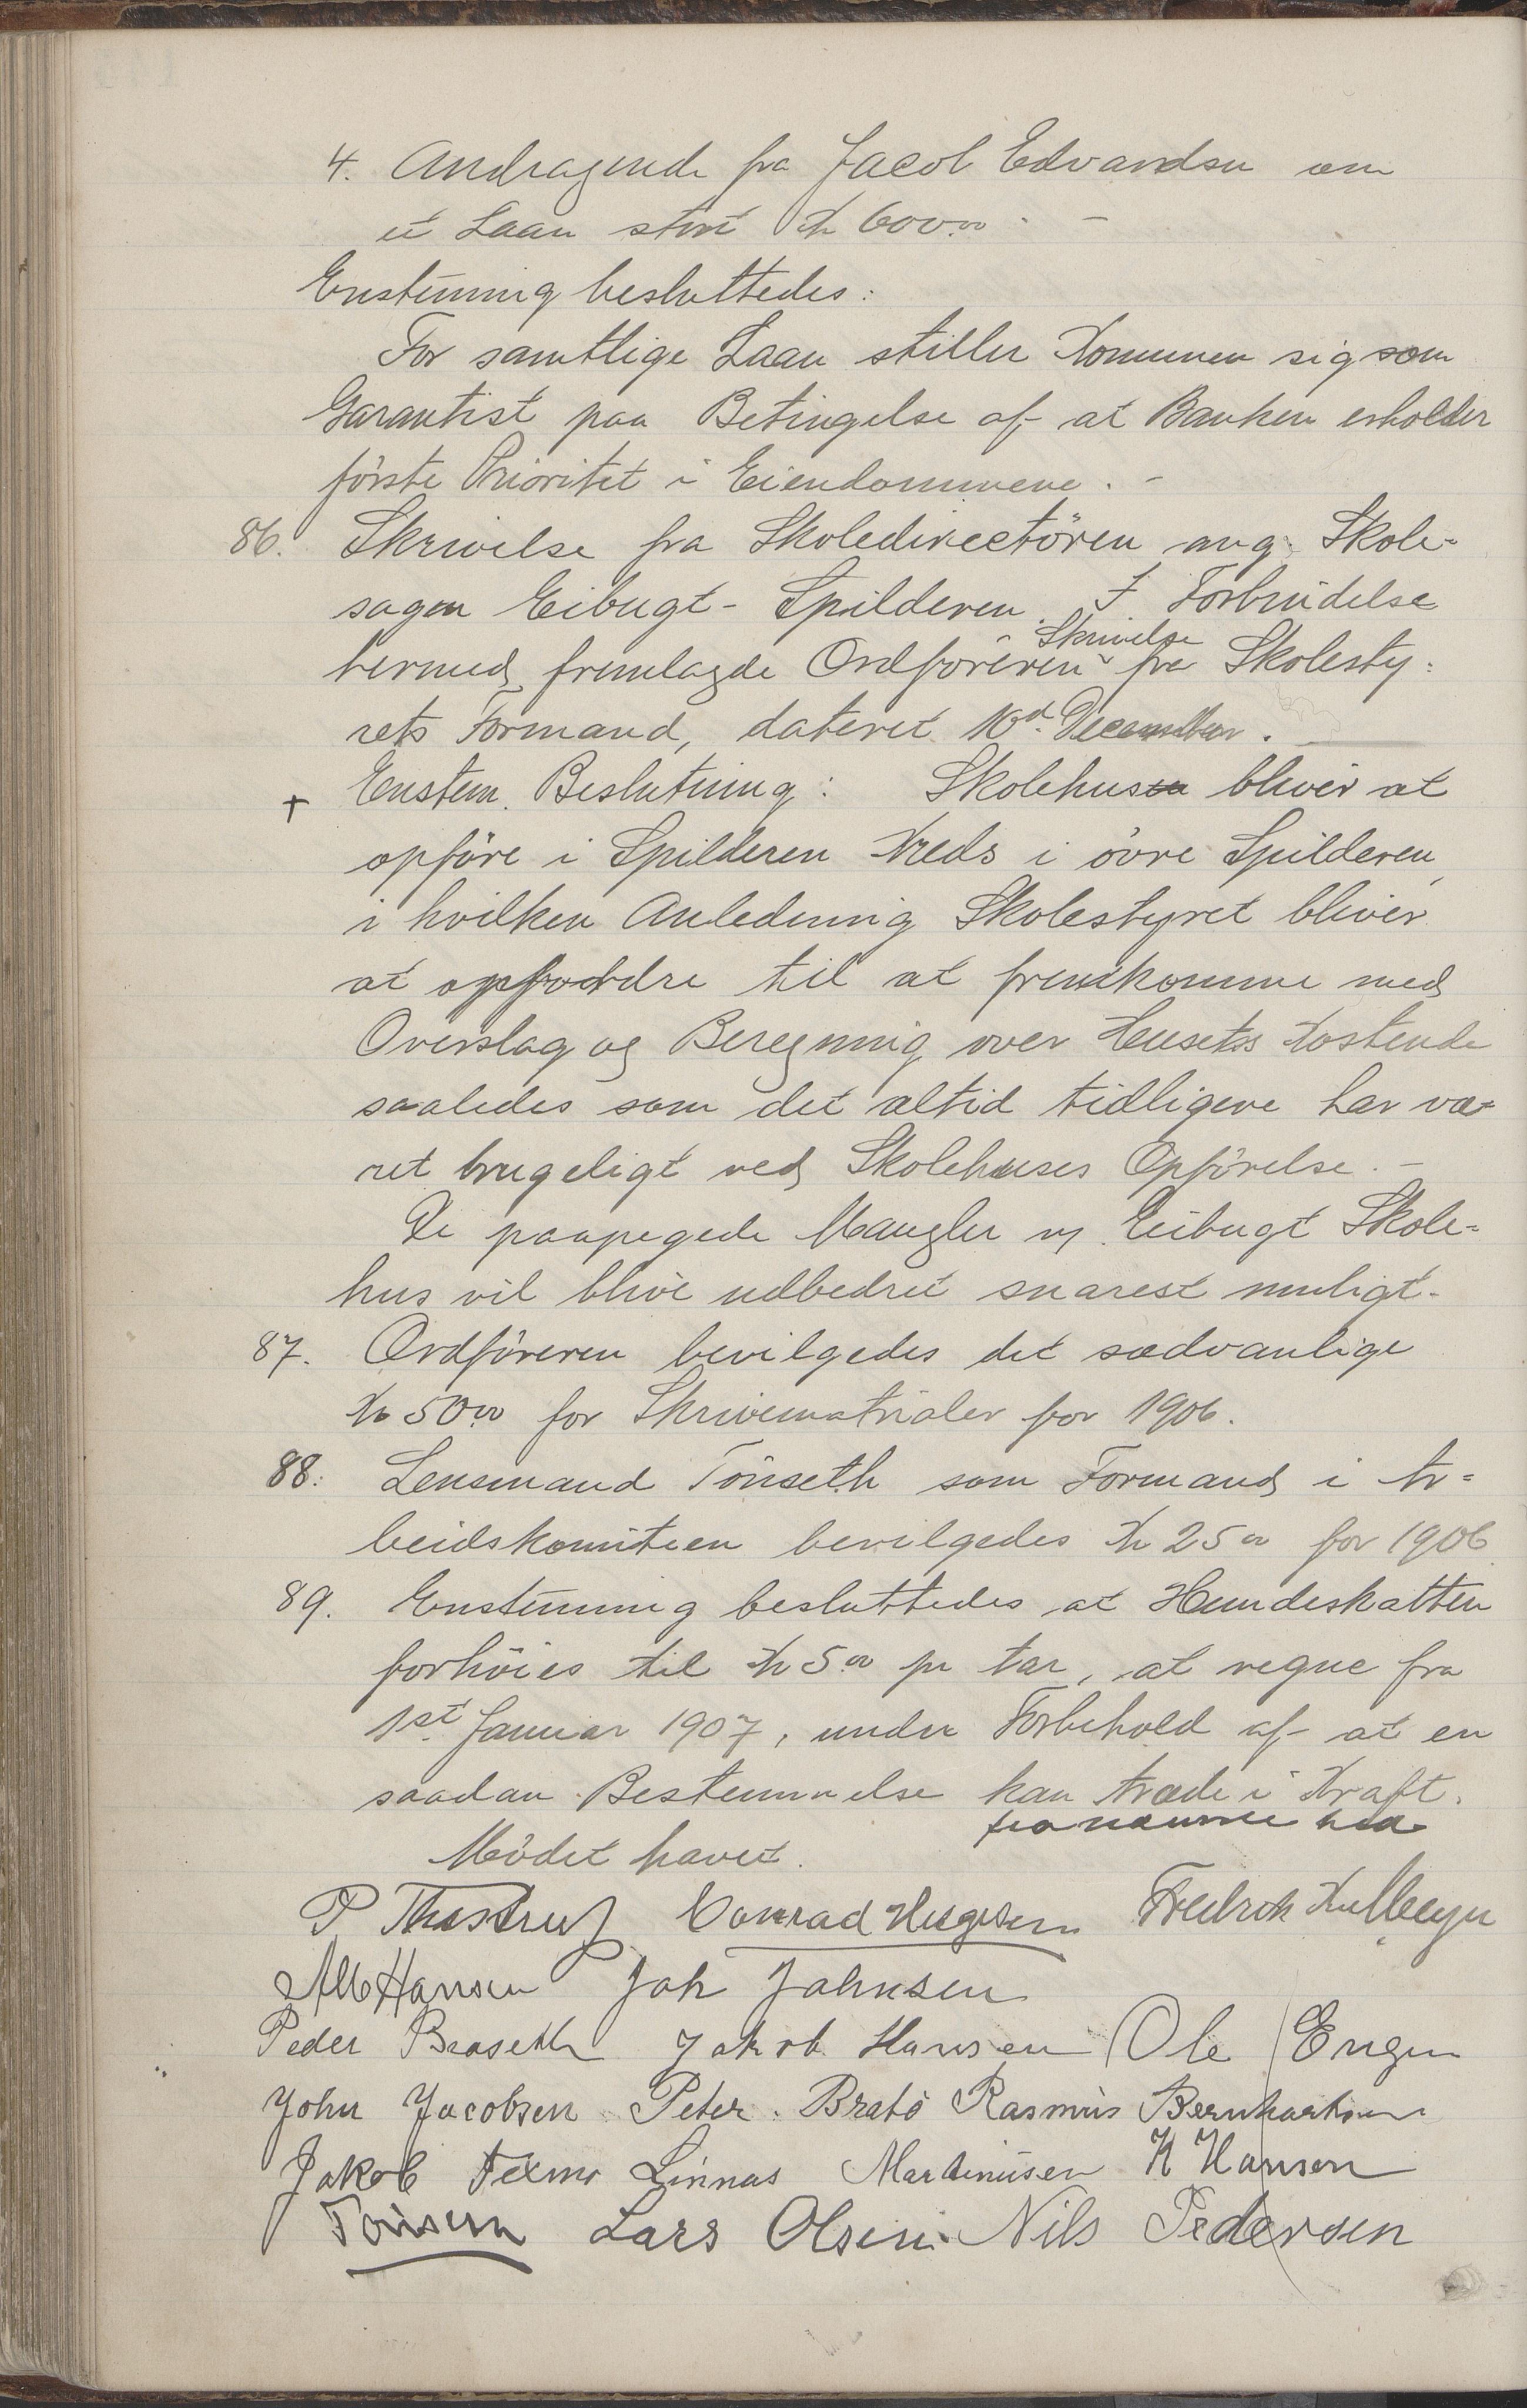 4. Andragende fra Jacob Edvardsen om
et Laan stort Kr 600.00. -
Enstemmig besluttedes:
For samtlige Laan stiller Kommunen sig som
Garantist paa Betingelse af at Banken erholder
förste Prioritet i Eiendommene. -
86. Skrivelse fra Skoledirectören ang. Skole-
sagen Eibugt - Spilderen. I Forbindelse
Skrivelse
hermed fremlagde Ordföreren fra Skolesty-
rets Formand, dateret 10d. December.
+ Enstem. Beslutning: Skolehus bliver at
opföre i Spilderen Kreds i övre Spilderen,
i hvilken Anledning Skolestyret bliver
at opfordre til at fremkomme med
Overslag og Beregning over Husets Kostende
saaledes som det altid tidligere har væ-
ret brugeligt ved Skolehuses Opförelse. -
De paapegede Mangler v/ Eibugt Skole-
hus vil blive udbedret snarest muligt.
87. Ordföreren bevilgedes det sædvanlige
Kr 50.00 for Skrivematrialer for 1906.
88. Lensmand Tönseth som Formand i Ar-
beidskomiteen bevilgedes Kr 25.00 for 1906
89. Enstemmig besluttedes at Hundeskatten
forhöies til Kr 5.00 pr Aar, at regne fra
1st Januar 1907, under Forbehold af at en
saadan Bestemmelse kan træde i Kraft.
fra nævnte
Mödet hævet.
P Thostrup Conrad Helgesen Fredrik
Alb Hansen Joh Johnsen
Peder Braseth Jakob Hansen Ole Engen
John Jacobsen Peter Bratö Rasmus Bernhardsen
Jakob Linnus Martinusen K Hansen
Lars Olsen Nils Pedersen